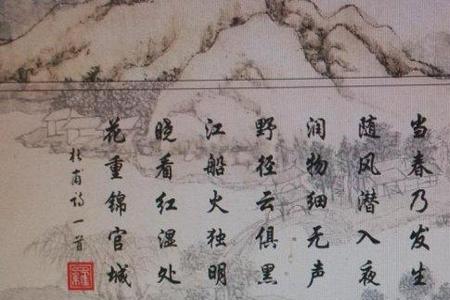 当春乃发生
随风潜入夜
润物细无声
野径云俱黑
江船火独明
晓看红湿处
花重锦官城
杜甫诗一首